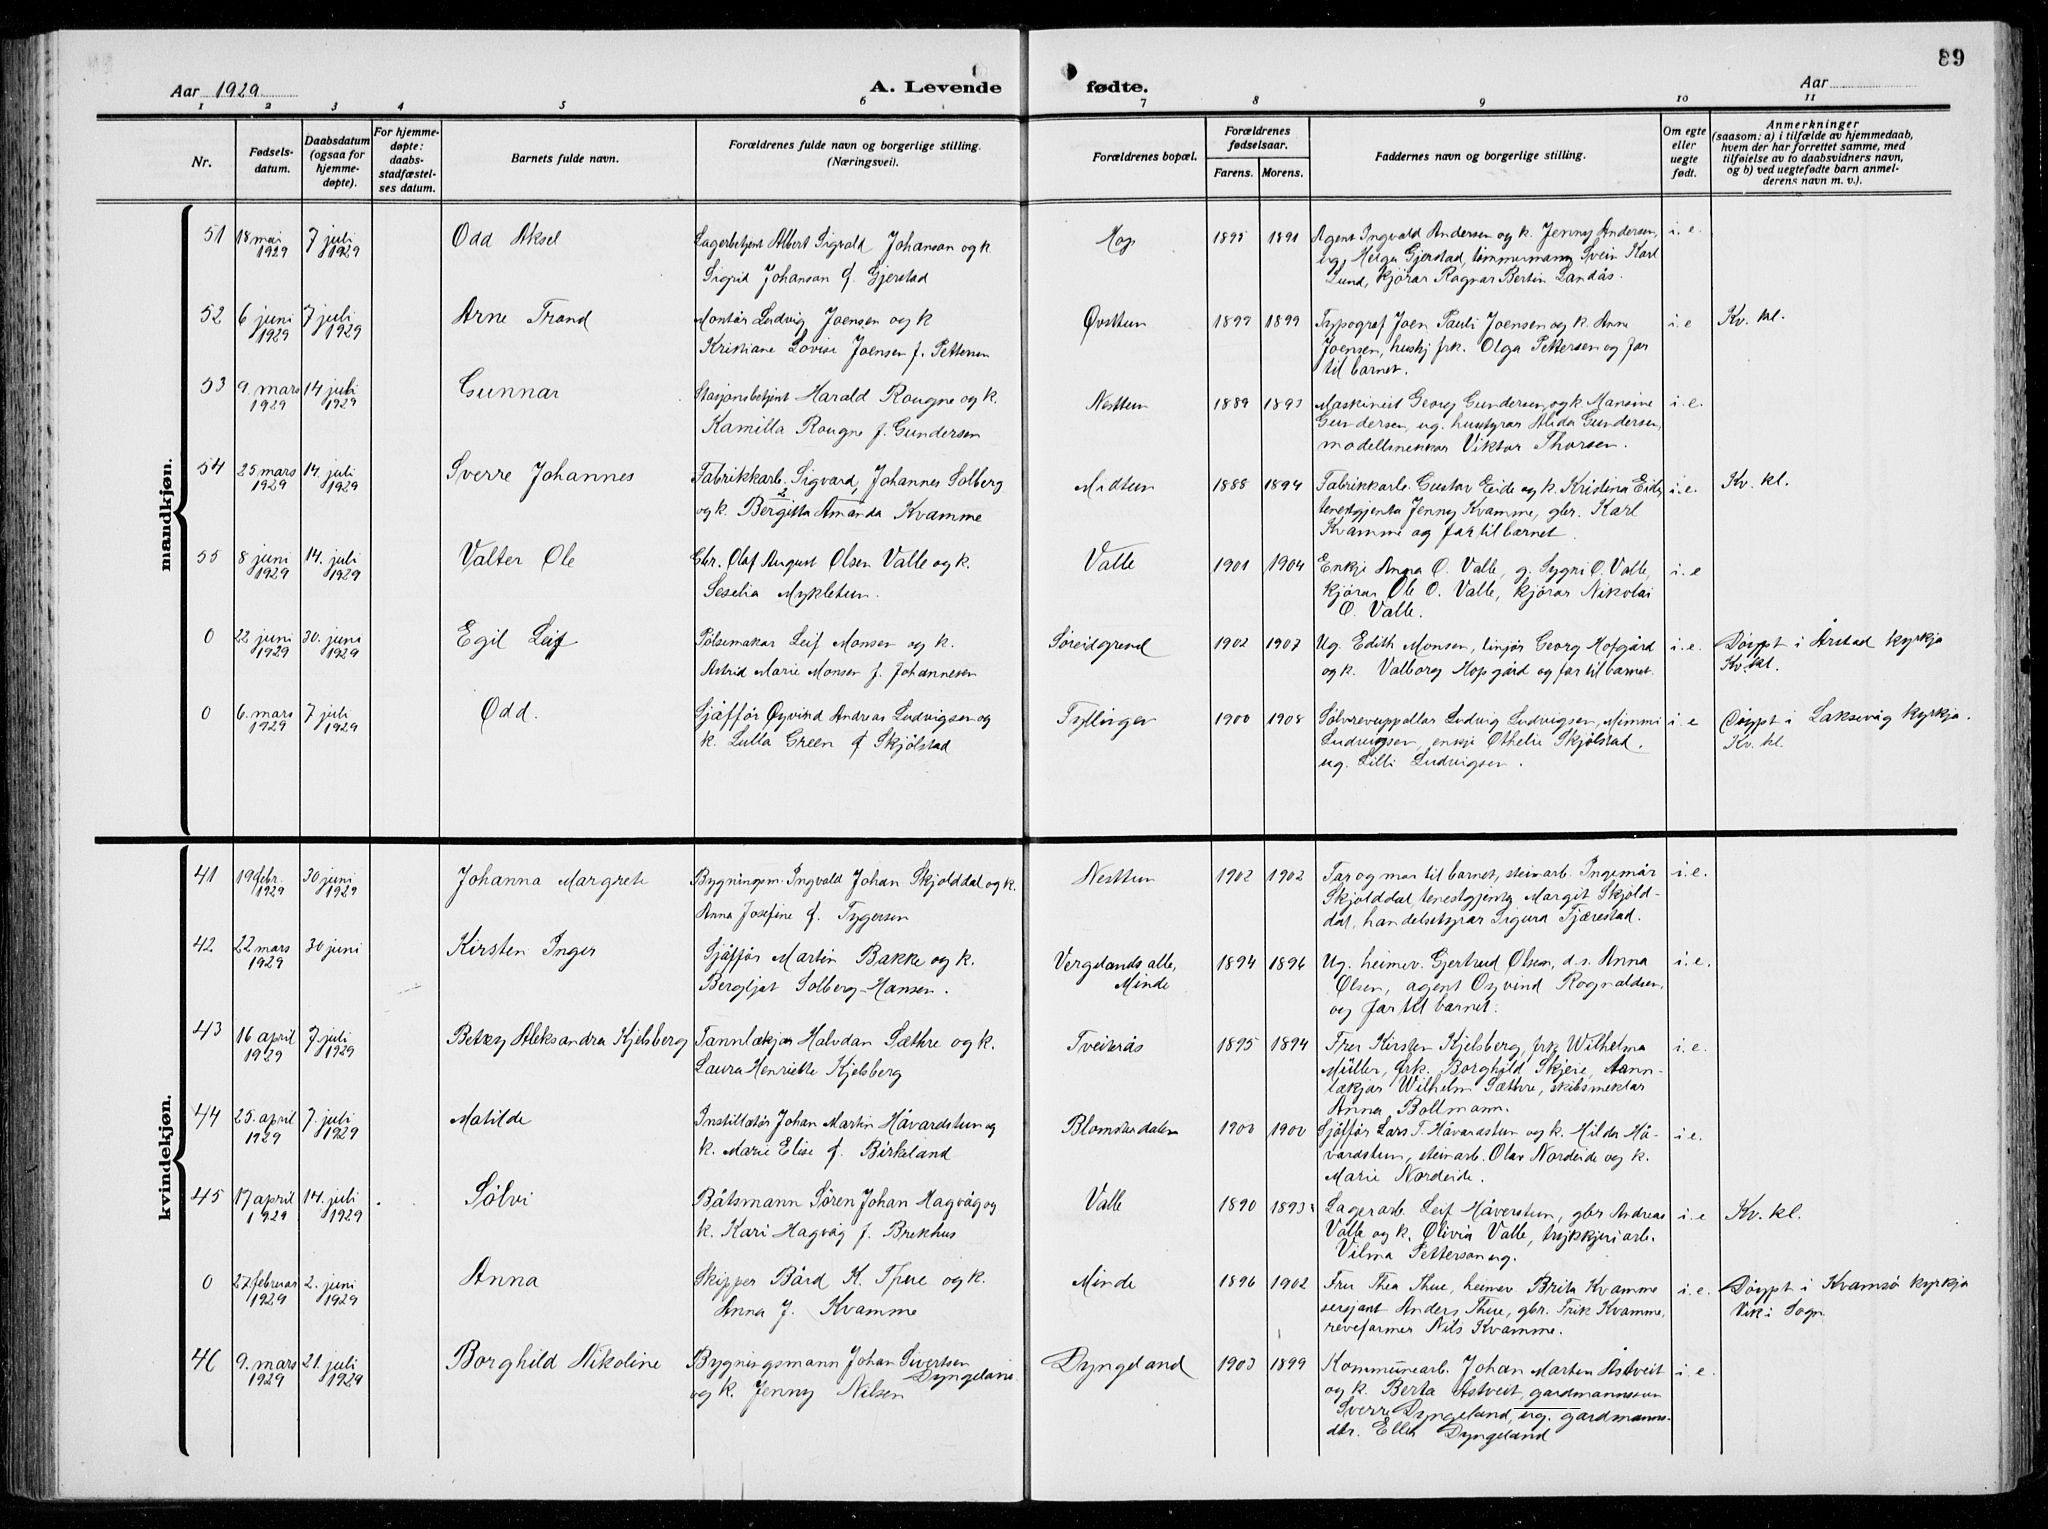 89
Aar 1929
A. Levende fødte.
Aar
1 2 3 4 5 6 7 8 9 10 11
Nr.
Fødsels-
datum.
Daabsdatum
(ogsaa for
hjemme-
døpte).
For hjemme-
døpte:
daabs-
stadfæstel-
ses datum.
Barnets fulde navn.
Forældrenes fulde navn og borgerlige stilling.
(Næringsvei).
Forældrenes bopæl.
Forældrenes
fødselsaar.
Farens. Morens.
Faddernes navn og borgerlige stilling.
Om egte
eller
uegte
født.
Anmerkninger
(saasom: a) i tilfælde av hjemmedaab,
hvem der har forrettet samme, med
tilføielse av to daabsvidners navn,
og b) ved uegtefødte barn anmel-
derens navn m. v.).
mandkjøn.
51 18 mai 1929 7 juli 1929 Odd Aksel
Lagerbetjent Albert Sigvald Johanson og k.
Sigrid Johanson f. Gjerstad
Hop 1895 1891
Agent Ingvald Andersen og k. Jenny Andersen,
ug. Helga Gjerstad, tømmermann Svein Karl
Lund, kjörar Ragnar Bertin Landås.
i. e.
52 6 juni 1929 7 juli 1929 Arne Trond
Montör Ludvig Joensen og k
Kristiane Lovise Joensen f. Pettersen
Øvsttun 1899 1899
Typograf Joen Pauli Joensen og k. Anna
Joensen, hushj frk. Olga Pettersen og far
til barnet.
i. e Kv. kl.
53 9. mars 1929 14 juli 1929 Gunnar
Stasjonsbetjent Harald Rougne og k.
Kamilla Rougne f. Gundersen
Nesttun 1889 1893
Maskinist Georg Gundersen og k. Mansine
Gundersen, ug. hustyrar Alida Gundersen,
modellsnekkar Viktor Thorsen.
i. e.
54 25 mars 1929 14. juli 1929 Sverre Johannes
Fabrikkarb. Sigvard Johannes Solberg
og k. Bergitta Amanda Kvamme
Midtun 1888 1894
Fabrikkarb. Gustav Eide og k. Kristina Eide,
tenestgjenta Jenny Kvamme, gbr. Karl
Kvamme og far til barnet.
i. e. Kv. kl.
55 8 juni 1929 14. juli 1929 Valter Ole
Gbr. Olaf August Olsen Valle og k.
Seselia Mykletun.
Valle 1901 1904
Enkje Anna O. Valle, g. Sygni O. Valle,
kjörar Ole O. Valle, kjörar Nikolai
O. Valle.
i. e
0 22 juni 1929 30. juni 1929 Egil Leif
Pölsemakar Leif Monsen og k.
Astrid Marie Monsen f. Johannesen
Søreidgrend 1902 1907
Ug. Edith Monsen, linjör Georg Hopgård
og k. Valborg Hopgård og far til barnet.
i. e. Döypt i Årstad kyrkja
Kv. kl.
0 6. mars 1929 7 juli 1929 Odd.
Sjåffør Øyvind Andreas Ludvigsen og
k. Lulla Green f Skjölstad
Tyllingen 1900 1908
Sölvrevuppallar Ludvig Ludvigsen, Mimmi
Ludvigsen, enkje Othelie Skjölstad,
ug. Lilli Ludvigsen.
i. e Döypt i Laksevåg kyrkja.
Kv. kl.
kvindekjøn.
41 19 febr. 1929 30 juni 1929 Johanna Margrete
Bygningsm. Ingvald Johan Skjolddal og k.
Anna Josefine f. Tygersen
Nesttun 1902 1902
Far og mor til barnet, steinarb. Ingemar
Skjölddal, tenestgjenta Margit Skjöld-
dal, handelsstyrar Sigurd Tjærestad.
i. e.
42 22 mars 1929 30 juni Kirsten Inger
Sjåffør Martin Bakke og k.
Bergljot Solberg-Hansen.
Vergelands alle,
Minde
1894 1896
Ug. heimev. Gjertrud Olsen, d. s. Anna
Olsen, agent Oyvind Rognaldsen,
og far til barnet.
i. e.
43 16 april 1929 7. juli 1929 Betzy Aleksandra Kjelsberg
Tannlækjar Halvdan Sæthre og k.
Laura Henriette Kjelsberg
Tveiterås 1895 1894
Fru Kirsten Kjelsberg, frk Wilhelma
Müller, frk. Borghild Skjeie, Tann-
lækjar Wilhelm Sæthre, skibsmeklar
Anna Bollmann.
i. e.
44 25. april 1929 7. juli 1929 Matilde
Instillatör Johan Martin Håvardstun og
k. Marie Elise f. Birkeland
Blomsterdalen 1900 1900
Sjåffør Lars T. Håvardstun og k. Hilda Hå-
vardstun, steinarb. Olav Nordeide og k.
Marie Nordeide.
i. e.
45 17 april 1929 14. juli 1929 Sølvi
Båtsmann Sören Johan Hagvåg og
k. Kari Hagvåg f. Brekhus
Valle 1890 1893
Lagerarb. Leif Håverstun, gbr Andreas
Valle og k. Olivia Valle, trykkjeriarb.
Vilma Petterson ug.
i. e Kv. kl.
0 27. februar 1929 2. juni 1929 Anna
Skipper Bård K. Thue og k.
Anna J. Kvamme
Minde 1896 1902
Fru Thea Thue, heimev. Brita Kvamme
sersjant Anders Thue, gbr. Erik Kvamme,
revefarmer Nils Kvamme.
i. e. Döypt i Kvamsö kyrkja
Vik i Sogn
46 9. mars 1929 21. juli 1929 Borghild Nikoline
Bygningsmann Johan Sivertsen
Dyngeland
og k. Jenny Nilsen
Dyngeland 1903 1899
Kommunearb. Johan Martin Åstveit
og k. Berta Åstveit, gardmannsson
Sverre Dyngeland, ug. gardmanns-
dtr. Ellen Dyngeland
i. e.